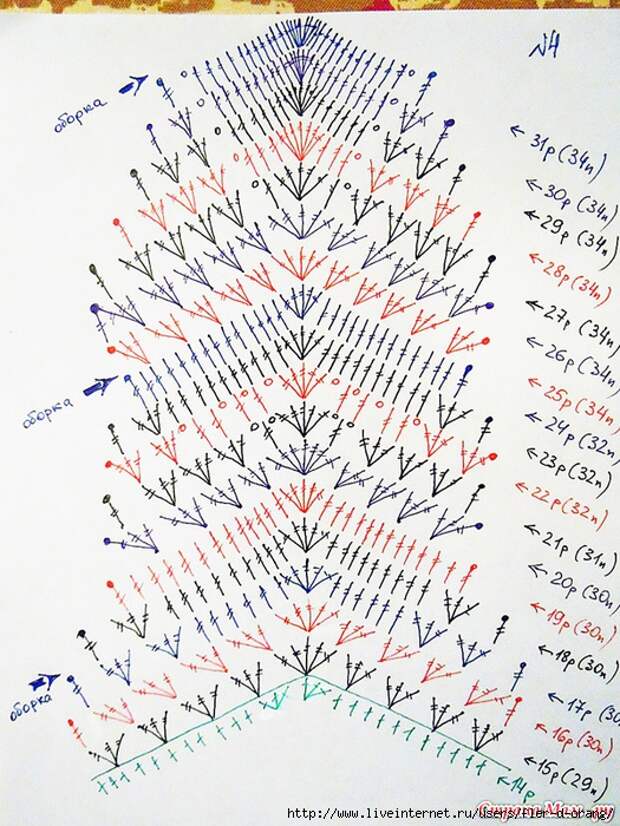 N4
оборка
31р (34п)
30р (34п)
29р (34п)
28р (34п)
27р (34п)
26р (34п)
оборка
25р (34п)
24р (32п)
23р (32п)
22р (32п)
21р (31п)
20р (30п)
19р (30п)
18р (30п)
оборка
17р (30
16р (30п)
15р (29п)
14р
http://www.liveinternet.ru/users/fler-d-orang/